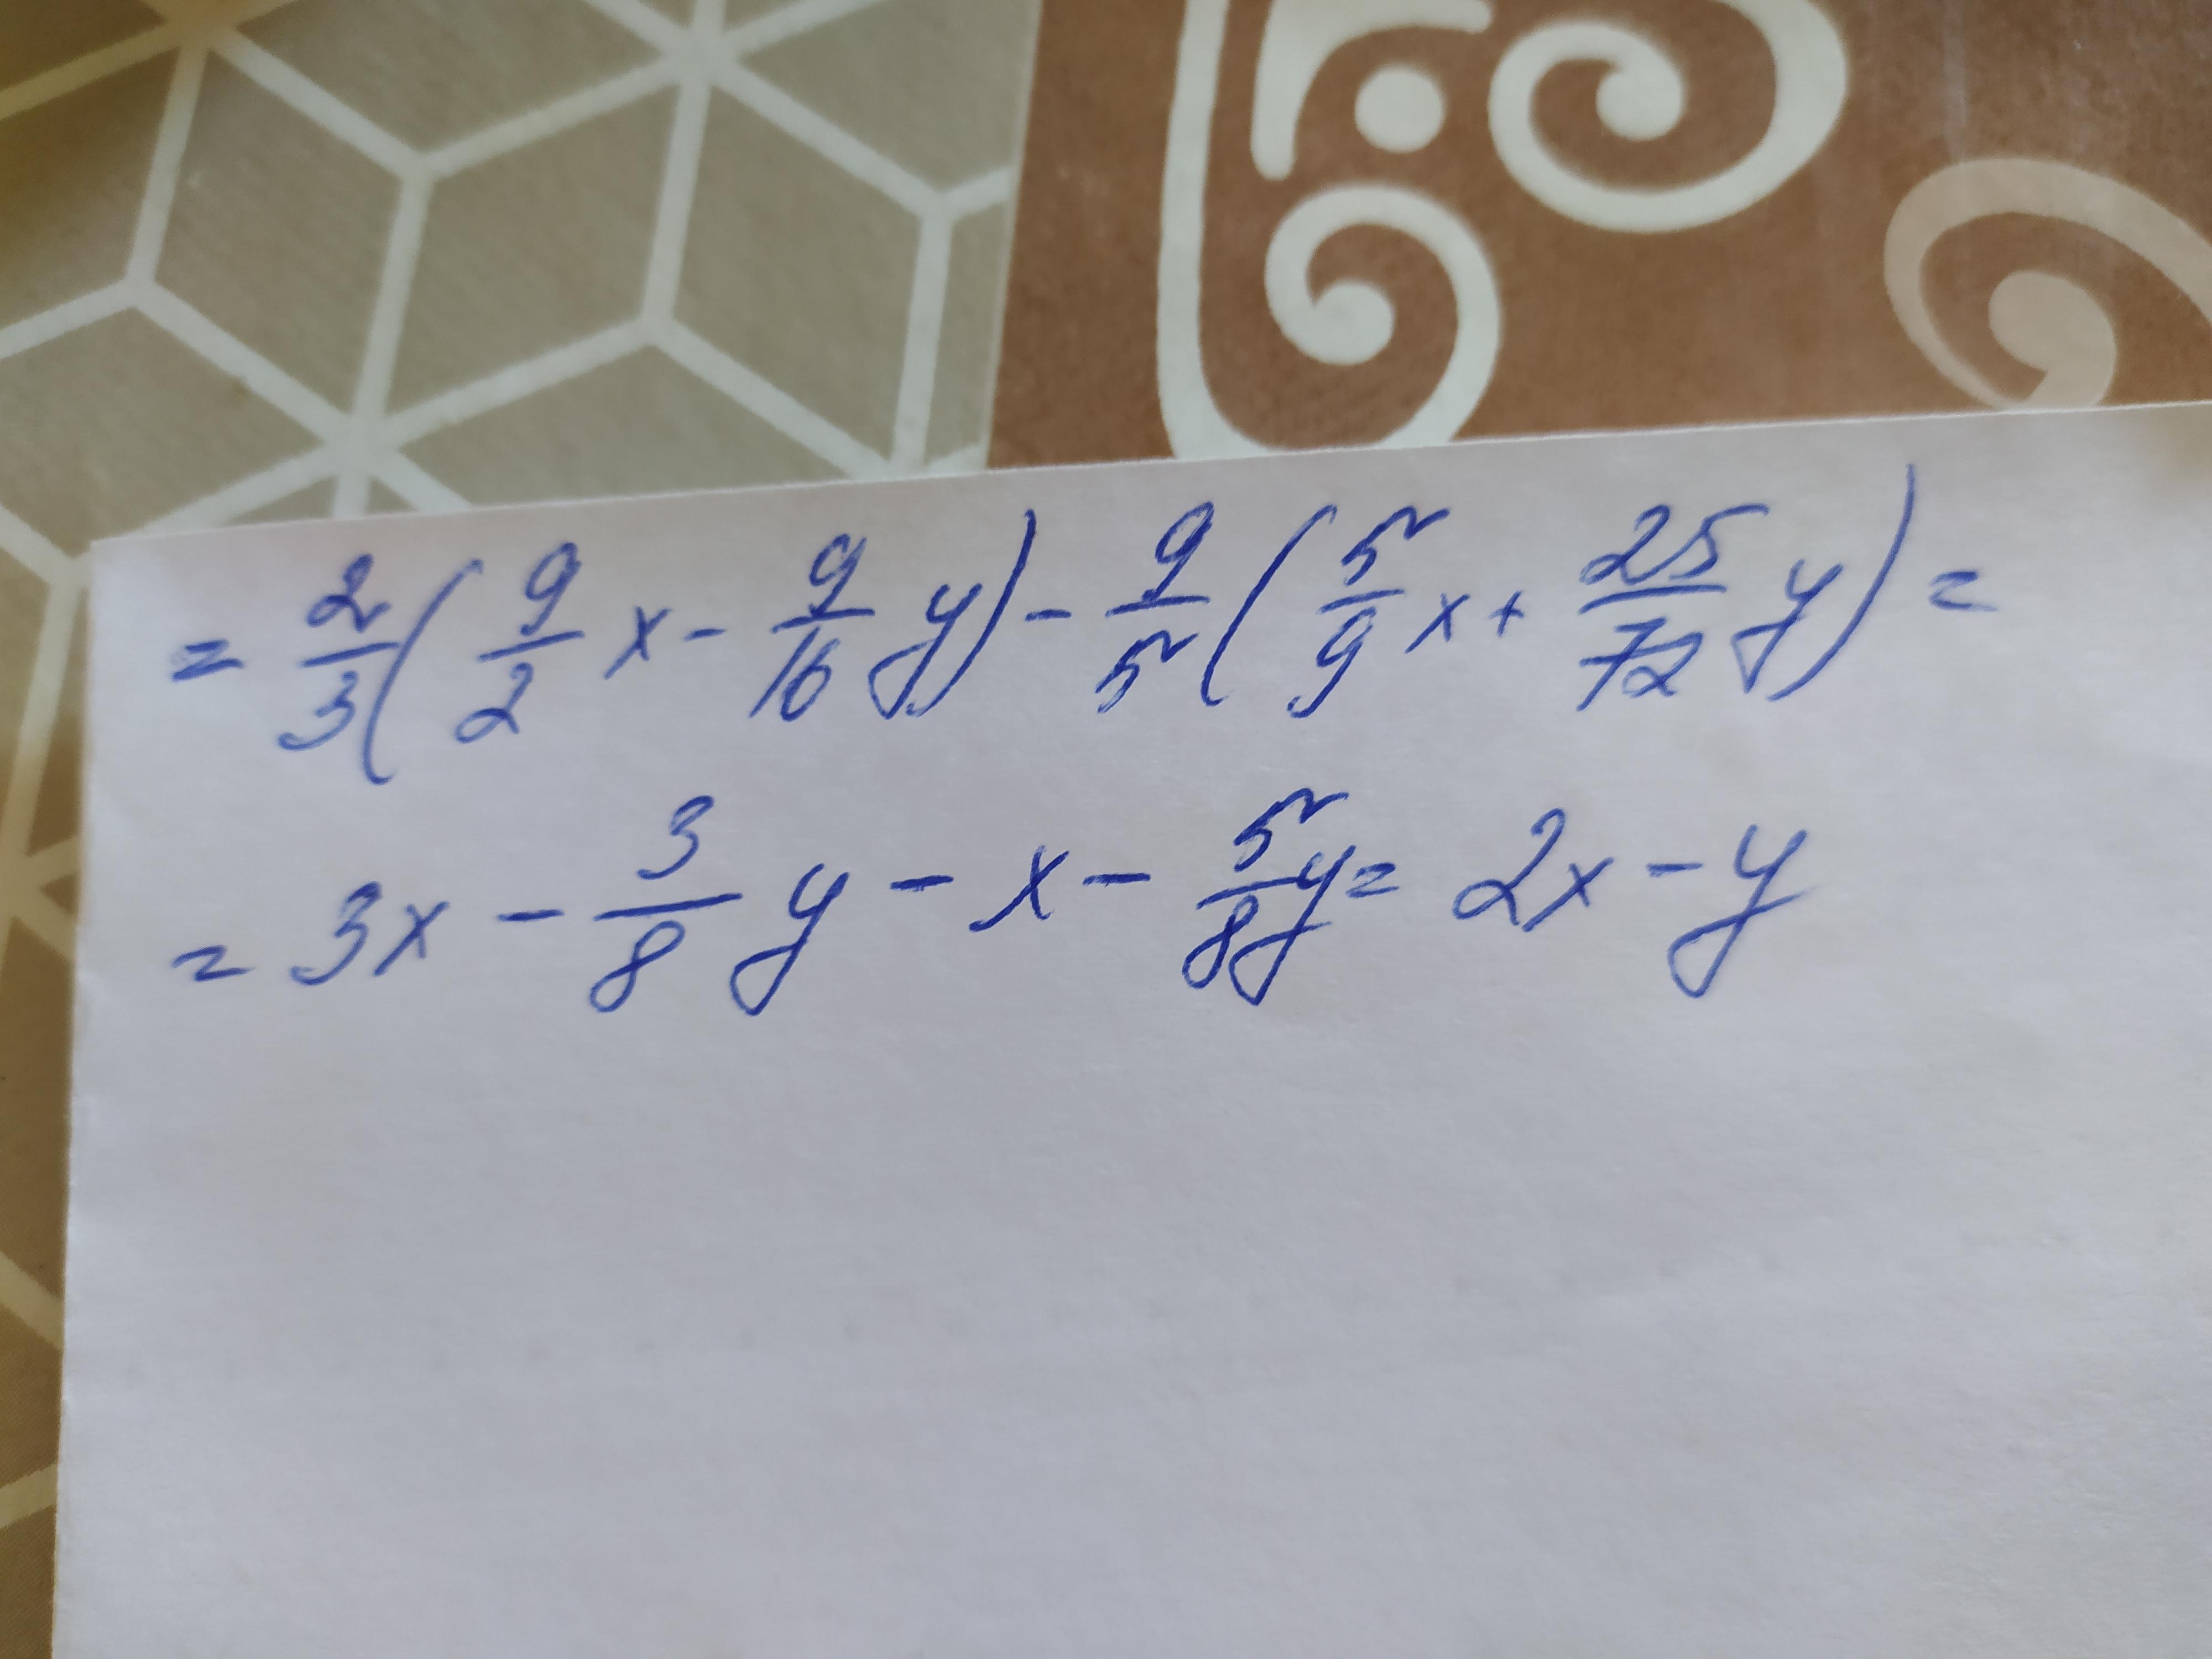 = 2/3 ( 9/2 x - 9/16 y ) - 9/5 ( 5/9 x + 25/72 y ) =
= 3x - 3/8 y - x - 5/8 y = 2x - y